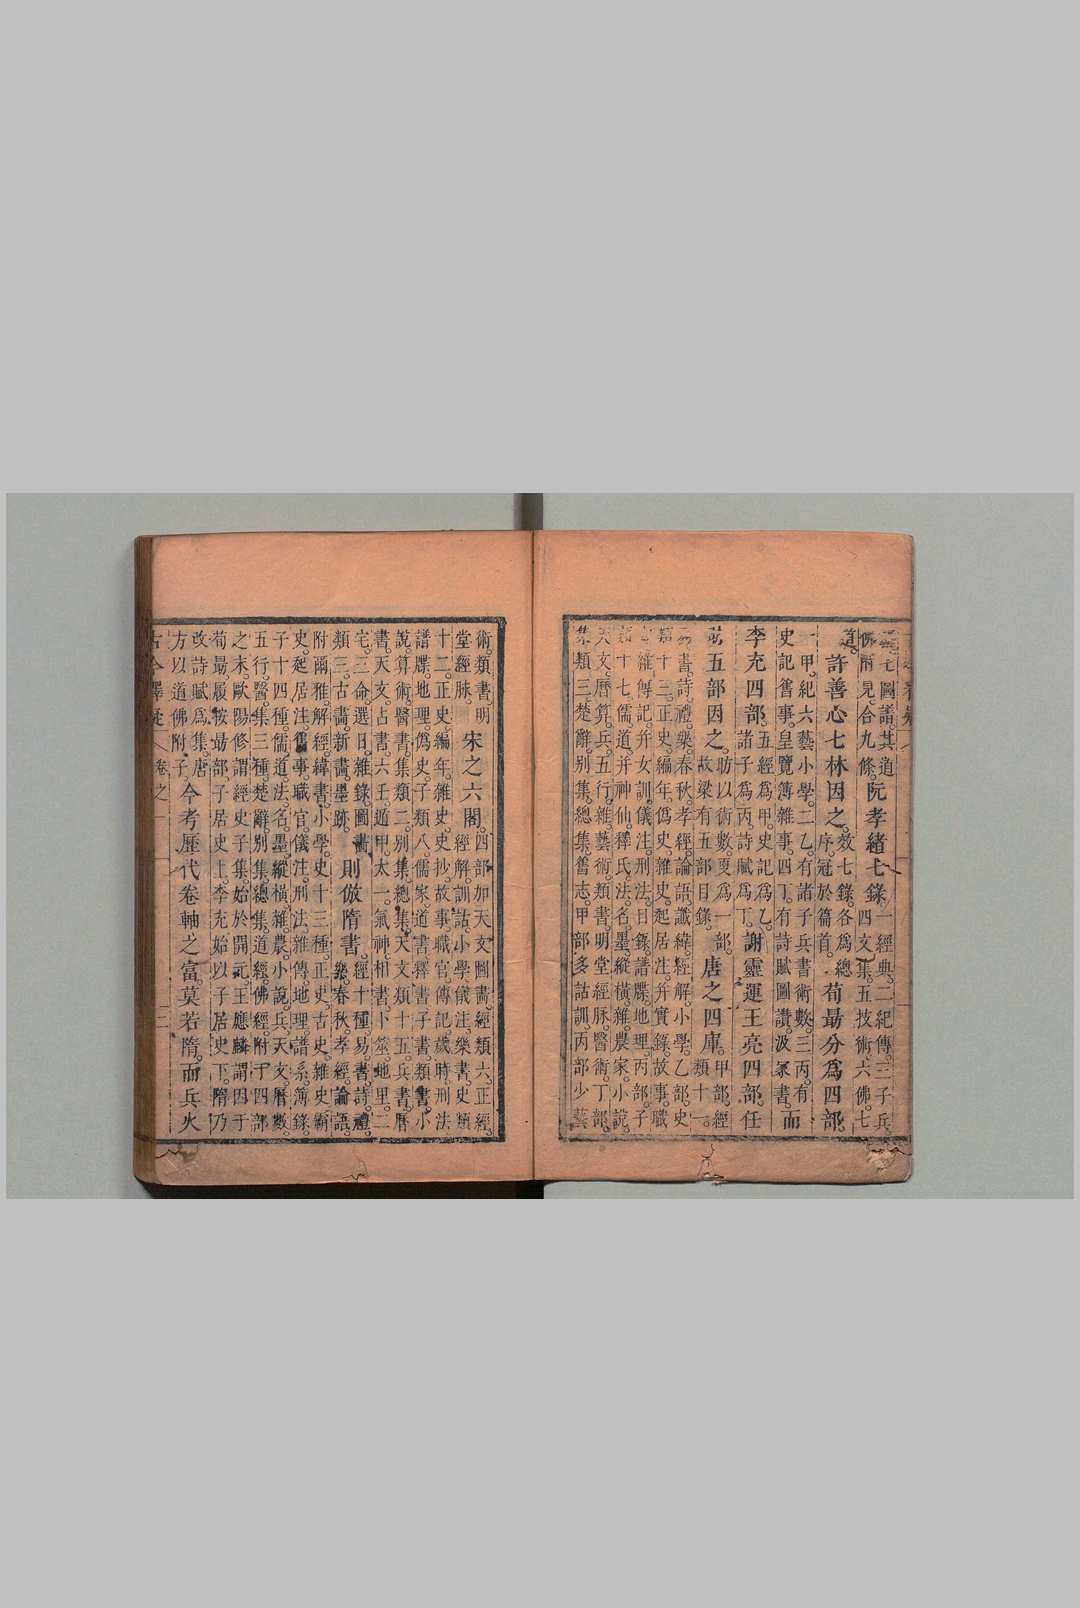 七圖譜其道
佛附見合九條。阮孝緒七錄。一經典。二紀傳。三子兵。
四文集。五技術。六佛。七
道。許善心七林因之。效七錄。各為總
序。冠於篇首。荀勗分爲四部。
一甲。紀六藝小學。二乙。有諸子兵書術數。三丙。有
史記舊事。皇覽簿雜事。四丁。有詩賦圖讚。汲冢書。而
李充四部。五經爲甲。史記爲乙。
諸子爲丙。詩賦爲丁。謝靈運王亮四部。任
昉五部因之。昉以術數更爲一部。
故梁有五部目錄。唐之四庫。甲部經
類十一。
易。書。詩。禮。樂。春秋。孝經。論語。讖緯。經解。小學。乙部史
類十三。正史。編年。爲史。雜史。起居注。并實錄。故事。職
官。雜傳記。并女訓。儀注。刑法。目錄。譜牒。地理。丙部子
類十七。儒。道。并神仙釋氏。法。名。墨。縱橫。雜。農家。小說。
天文。曆算。兵。五行。雜藝術。類書。明堂經脉。醫術。丁部
集類三。楚辭。別集。總集。舊志。甲部多詁訓。丙部少藝
術。類書。明
堂經脉。宋之六閣。四部加天文圖畫。經類六。正經。
經解。訓詁。小學。儀注。樂書。史類
十二。正史。編年。雜史。史抄。故事。職官。傳記。歲時。刑法
譜牒。地理。偽史。子類八。儒家。道書。釋書。子書。類書。小
說。算術。醫書。集類二。別集。總集。天文類十五。兵書。曆
書。天文。占書。六壬。遁甲。太一。氣神。相書。卜筮。地里。二
宅。三命。選日。雜錄。圖畫
類三。古畫。新畫。墨跡。則倣隋書。經十種。易。書。詩。禮。
樂。春秋。孝經。論語。
附爾雅。解經。緯書。小學。史十三種。正史。古史。雜史。霸
史。起居注。舊事。職官。儀注。刑法。雜傳。地理。譜系。簿錄。
子十四種。儒。道。法。名。墨。縱橫。雜。農。小說。兵。天文。曆數。
五行。醫。集三種。楚辭。別集。總集。道經。佛經。附于四部
之末。歐陽修謂經史子集。始於開元。王應麟謂因于
荀勗。履按勗部。子居史上。李充始以子居史下。隋乃
改詩賦爲集。唐
方以道佛附子。今考歷代卷軸之富。莫若隋。而兵火
古今釋疑 卷之一 三